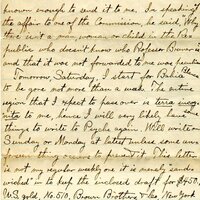 known enough to send it to me. In speaking of
the affair to one of the Commission, he said, Why
there isn't a man, woman or child in the Re-
public who doesn't know who Professor Bowers is
and that it was not forwarded to me was peculiar.
Tomorrow, Saturday, I start for Bahia
to be gone not more than a week. The entire
region that I expect to pass over is terra incog-
nita to me, hence I will very likely have
things to write to Psyche again. Will write on
Sunday or Monday at latest unless some un-
foreseen thing occurs to prevent it. This letter
is not my regular weekly one it is merely sand-
wiched in to keep the inclosed draft for $450,
U.S. gold, No. 510, Brown Brothers & Co. New York